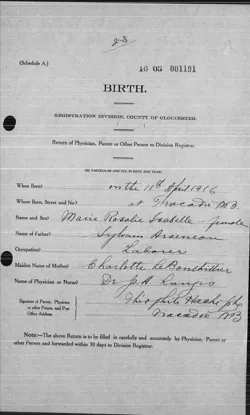 23
(Schedule A.) 16 05 001191
BIRTH.
REGISTRATION DIVISION, COUNTY OF GLOUCESTER.
Return of Physician, Parent or Other Person to Division Registrar.
(BE PARTICULAR AND FILL IN DATE AND YEAR)
When Born? on the 18th April 1916
Where Born, Street and No.? at Tracadie NB
Name and Sex? Marie Rosalie Isabelle - female
Name of Father? Sylvain Arseneau
Occupation? Laborer
Maiden Name of Mother? Charlotte
Name of Physician or Nurse? Dr
Signature of Parent, Physician or other Person, and Post Office Address. Theophile
Tracadie NB
NOTE—The above Return is to be filled in carefully and accurately by Physician, Parent or
other Person and forwarded within 30 days to Division Registrar.